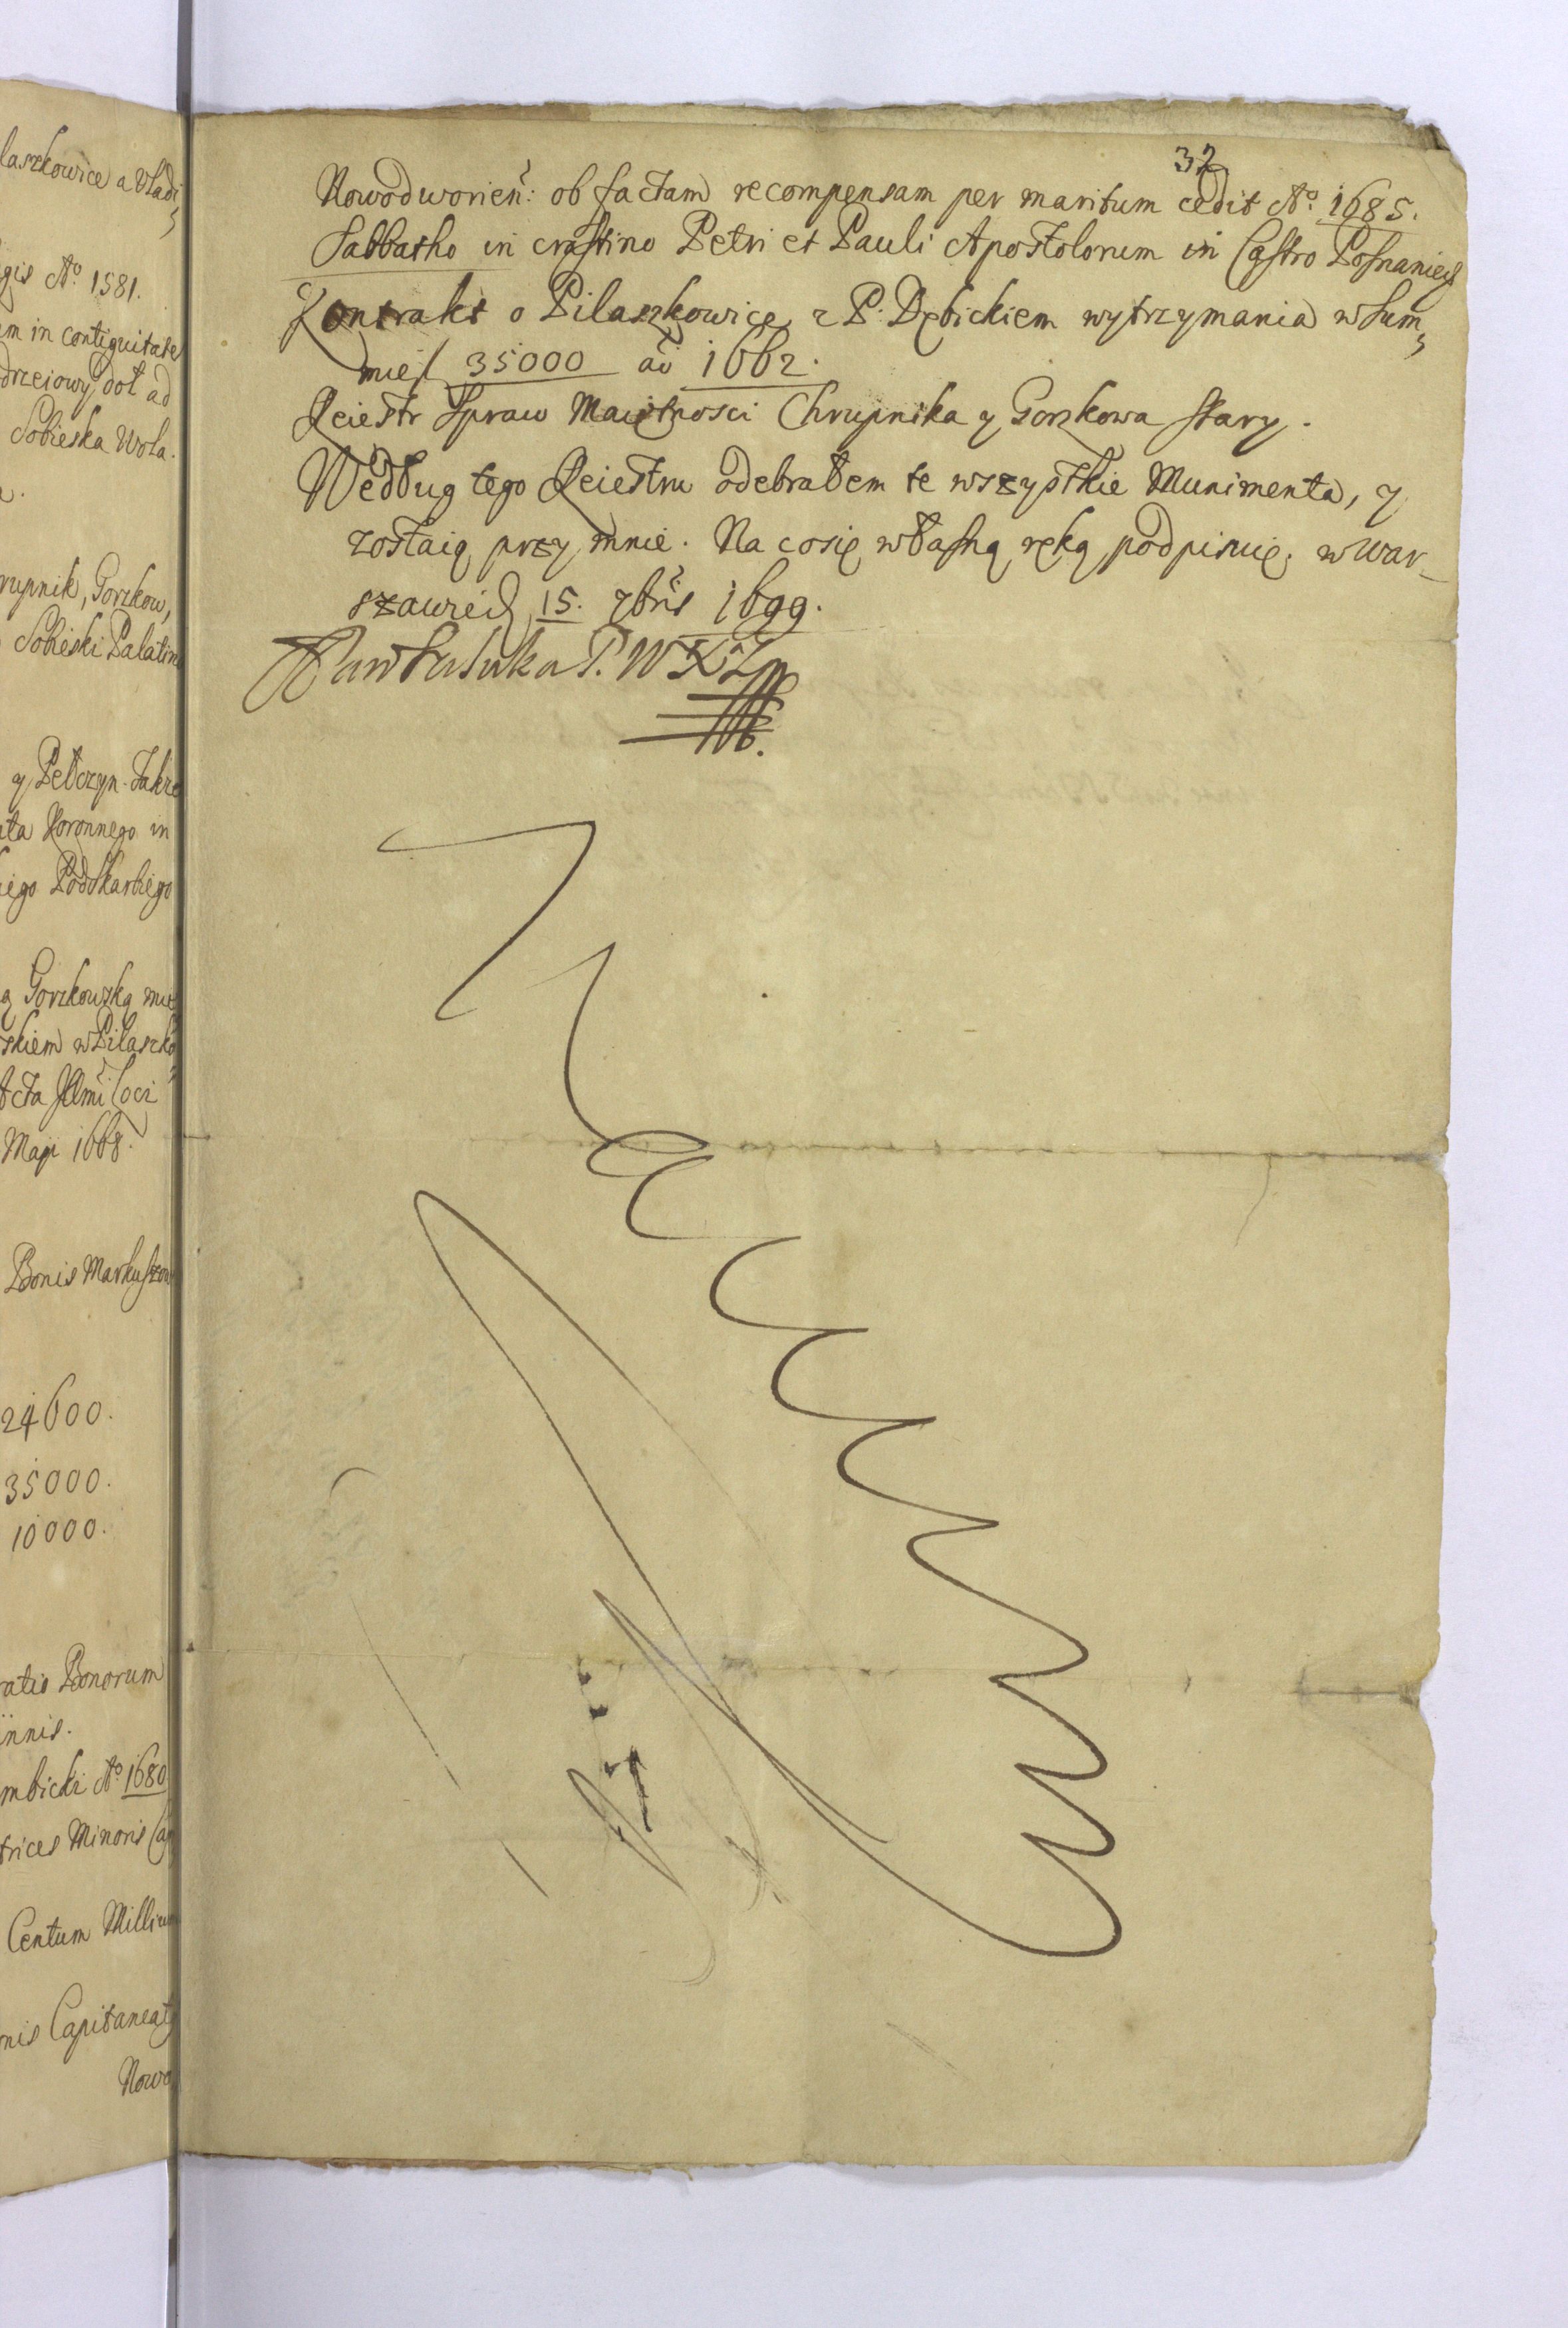 laszkowice a Vladi
gis Aº 1581.
m in contiguitate
drzeiowy dot ad
Sobieska Wola.
rupnik, Gorzkow,
Sobieski Palatin
y Pełczyn. Takze
ta Koronnego in
iego Podskarbiego
Gorzkowską mie
skiem w Pilaszko
Maji 1668.
Bonis Markuszow
24600.
35000.
10000.
ratio Bonorum
innis.
mbicki Aº 1680
trices Minoris Cap
Centum Millium
nis Capitaneat
Nowo
32
Nowodworień: ob factam recompensam per maritum cedit Aº 1685.
Sabbatho in crastino Petri et Pauli Apostolorum in Castro Posnanień
Kontrakt o Pilaszkowice z P. Dębickiem wytrzymania w Sum,
mie 35000 aö 1662.
Reiestr Spraw Maiętnosci Chrupnika y Gorzkowa stary.
Według tego Reiestru odebrałem te wszystkie Munimenta, y
zostaią przy mnie. Na co się własną ręką podpisuię. w War_
szawie 15. 7bris 1699.